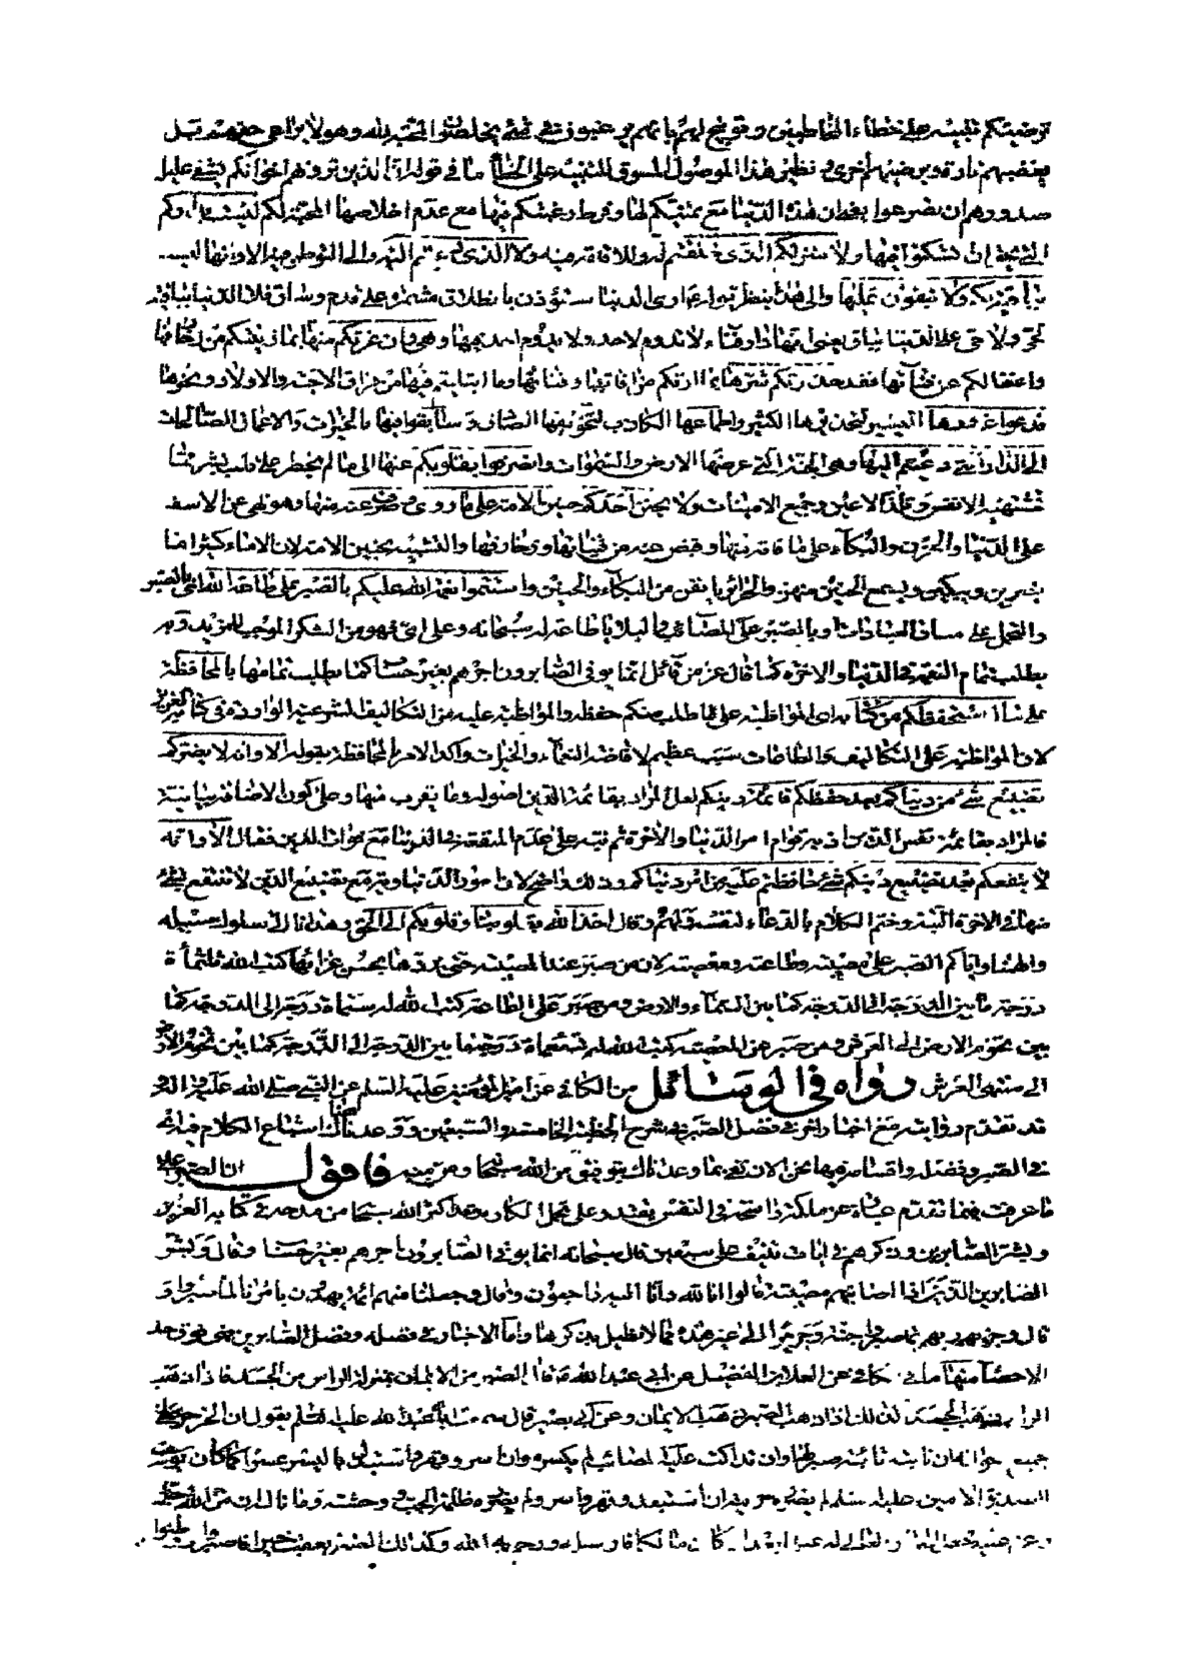 ترضيتكم تنبيه على خطاء الخاطئين وتوبيخ لهم بانهم يرغبون في شيء يخلصون المحبة لله وهو لا يراعى حقهم بل
يغضبهم تارة ويرضيهم اخرى ونظير هذا الموصول المسوق للتنبيه على الخطأ ما في قوله ان الذين ترونهم اخوانكم يشفي غليل
صدورهم ان تصرعوا يعني ان هذه الدنيا مع تمنيكم لها وفرط رغبتكم فيها مع عدم اخلاصها المحبة لكم ليست بداركم
التي ان تسكنوا فيها ولا منزلكم الذي خلقتم له وللاقامة فيه ولا الذي دعيتم اليه والى التوطن فيه الا وانها ليست
بباقية لكم ولا تبقون عليها والى هذا ينظر
لحي ولا حي على الدنيا بباق يعني انها دار فناء لا تدوم لاحد ولا يدوم احد فيها وهي وان غرتكم منها بما زينتكم من زخارفها
واغفالكم عن فنائها فقد حذرتكم شرها بما ارتكم من آفاتها وفنائها وما ابتليتم فيها من فراق الاحبة والاولاد ونحوها
فدعوا غرورها اليسير لتحذيرها الكثير واطماعها الكاذب لتخويفها الصادق وسابقوا فيها بالخيرات والاعمال الصالحات
الى الدار التي دعيتم اليها وهي الجنة التي عرضها الارض والسموات وانصرفوا بقلوبكم عنها الى ما لم يخطر على قلب بشر مما
تشتهيه الانفس وتلذ الاعين وجميع الامنيات ولا يحنن احدكم حنين الامة على ما زوى وصرف عنه منها وهو نهى عن الاسف
على الدنيا والحزن والبكاء على ما فاته منها وقبض عنه من قنياتها وزخارفها والتشبيه بحنين الامة لان الاماء كثيرا ما
يضربن ويبكين ويسمع الحنين منهن والحرائر يانفن من البكاء والحنين واستتموا نعمة الله عليكم بالصبر على طاعة الله اي بالصبر
والتحمل على مشاق العبادات وبالصبر على المصائب والبلايا طاعة له سبحانه وعلى اي فهو من الشكر الموجب للمزيد وبه
يطلب تمام النعمة في الدنيا والاخرة كما قال عز من قائل انما يوفى الصابرون اجرهم بغير حساب كما يطلب تمامها بالمحافظة
على ما استحفظكم من كتابه اي المواظبة على ما طلب منكم حفظه والمواظبة عليه من التكاليف الشرعية الواردة في كتابه العزيز
لان المواظبة على التكاليف والطاعات سبب عظيم لافاضة النعماء والخيرات واكد الامر بالمحافظة بقوله الا وانه لا يضركم
تضييع شيء من دنياكم بعد حفظكم قائمة دينكم لعل المراد بقائمة الدين اصوله وما يقرب منها وعلى كون الاضافة بيانية
فالمراد بقائمة نفس الدين اذ به قوام امر الدنيا والاخرة ثم نبه على عدم المنفعة في الدنيا مع فوات الدين فقال الا وانه
لا ينفعكم بعد تضييع دينكم شيء حافظتم عليه من امر دنياكم وذلك واضح لان امور الدنيا وية مع تضييع الدين لا تنفع شيء
منها في الاخرة البتة وختم الكلام بالدعاء لنفسه ولهم وقال اخذ الله بقلوبنا وقلوبكم الى الحق وهدانا الى سلوك سبيله
والهمنا واياكم الصبر على مصيبته وطاعته ومعصيته لان من صبر عند المصيبة حتى يردها بحسن عزائها كتب الله ثلثمأة
درجة ما بين الدرجة الى الدرجة كما بين السماء والارض ومن صبر على الطاعة كتب الله له ستمأة درجة ما بين الدرجة الى الدرجة كما
بين تخوم الارض الى العرش ومن صبر عن المعصية كتب الله له تسعمأة درجة ما بين الدرجة الى الدرجة كما بين تخوم الارض
الى منتهى العرش رواه في الوسائل من الكافي عن امير المؤمنين عليه السلم عن النبي صلى الله عليه واله
قد تقدم روايته مع اخبار اخر في فضل الصبر في شرح الخطبة الخامسة والسبعين ووعدنا هناك اشباع الكلام فيه اي
في الصبر وفضله واقسامه فها نحن الان نفي بما وعدناك بتوفيق من الله سبحانه ومن منه فاقول ان الصبر على
ما عرفت فيما تقدم عبارة عن ملكة راسخة في النفس يقتدر على تحمل المكاره وقد اكثر الله سبحانه من مدحه في كتابه العزيز
وبشر الصابرين وذكرهم في ايات تنيف على سبعين قال سبحانه انما يوفى الصابرون اجرهم بغير حساب وقال وبشر
الصابرين الذين اذا اصابتهم مصيبة قالوا انا لله وانا اليه راجعون وقال وجعلنا منهم ائمة يهدون بامرنا لما صبروا و
قال وجزيهم بما صبروا جنة وحريرا الى غير هذه مما لا نطيل بذكرها واما الاخبار في فضله وفضل الصابرين فهي فوق حد
الاحصاء منها ما في الكافي عن العلا بن الفضيل عن ابي عبد الله ع قال الصبر من الايمان بمنزلة الراس من الجسد فاذا ذهب
الراس ذهب الجسد كذلك اذا ذهب الصبر ذهب الايمان وعن ابي بصير قال سمعت ابا عبد الله عليه السلم يقول ان الحر حر على
جميع احواله ان نابته نائبة صبر لها وان تداكت عليه المصائب لم يكسره وان اسر وقهر واستبدل باليسر عسرا كما كان يوسف
الصديق الامين عليه السلم لم يضرر حريته ان استعبد وقهر واسر ولم يضرره ظلمة الجب ووحشته وما ناله ان من الله عليه